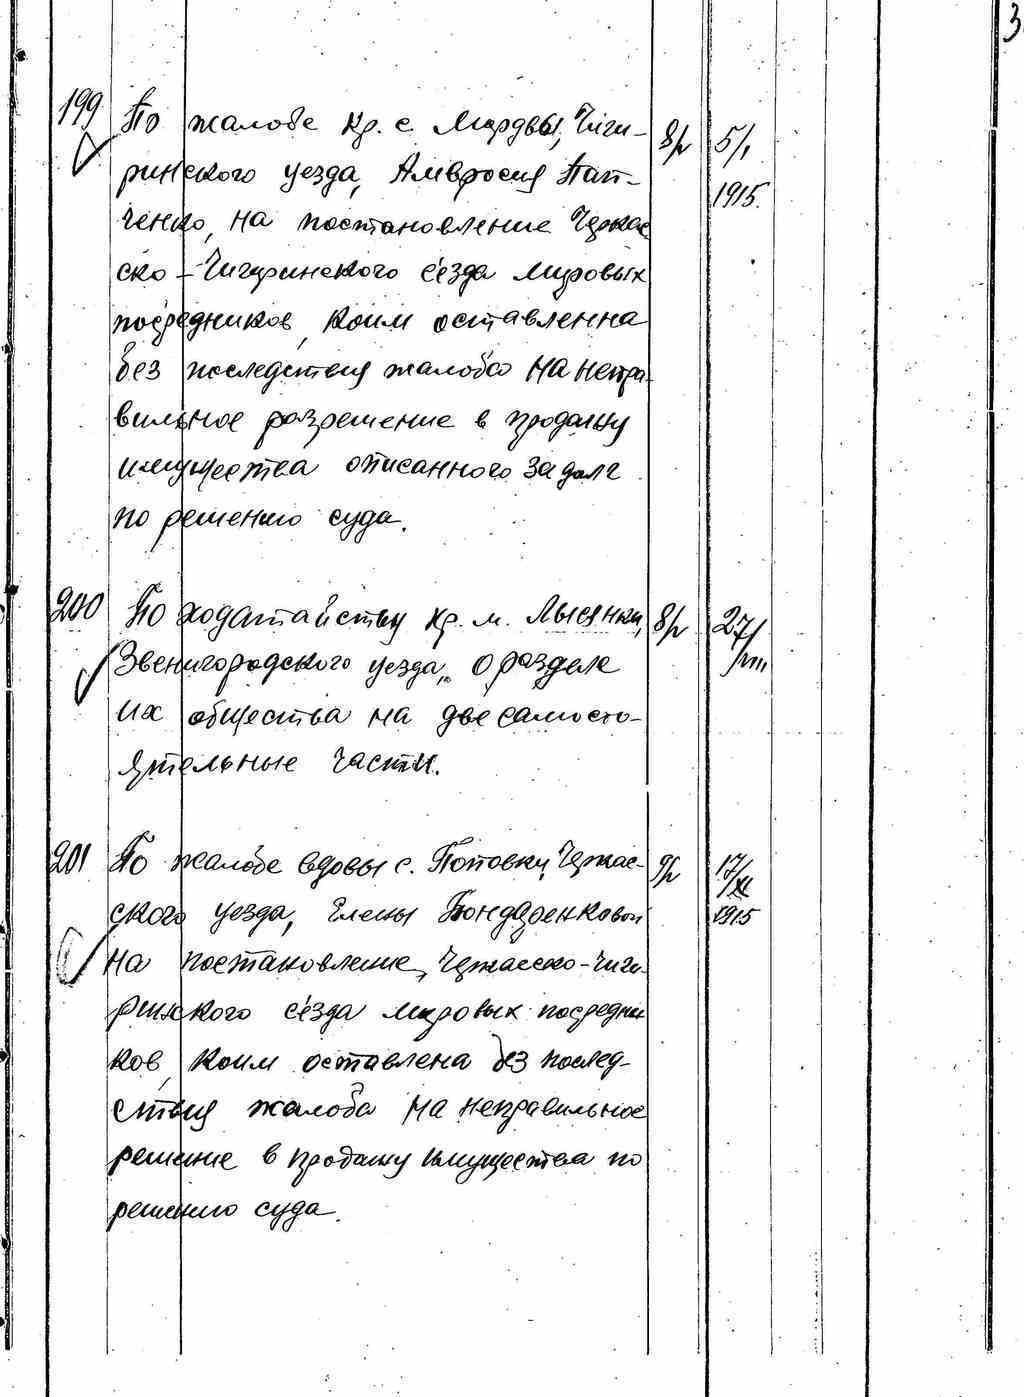 3
199 По жалобе кр. с. Мордвы, Чиги- 8р 5/I
ринского уезда, Амвросия Пан- 1915.
ченко, на постановление Черкас
ско-Чигиринского с'езда мировых
посредников, коим оставленна
без последствия жалоба на непра-
вильное разрешение в продажу
имущества описанного за долг
по решению суда.
200 По ходатайству кр. м. Лысянки, 8р 27/VIII
Звенигородского уезда, о разделе
их общества на две самосто-
ятельные части.
201 По жалобе вдовы с. Поповки, Черкас- 9р 17/XI
ского уезда, Елены Бондаренковой 1915
на постановление, Черкасско-Чиги-
ринского с'езда мировых посредни
ков, коим оставлена без послед-
ствия жалоба на неправильное
решение в продажу имущества по
решению суда.